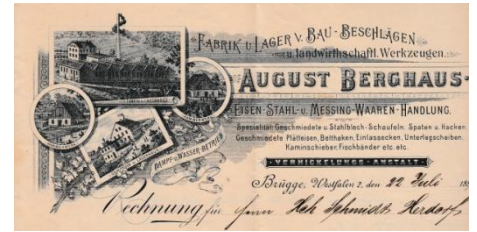 FABRIK U. LAGER V. BAU-BESCHLÄGEN
u. landwirthschaftl. Werkzeugen.
AUGUST BERGHAUS
EISEN-STAHL-U. MESSING-WAAREN-HANDLUNG.
Specialität: Geschmiedete u. Stahlblech-Schaufeln, Spaten u. Hacken.
Geschmiedete Plätteisen, Betthaken, Einlassecken, Unterlagscheiben,
Kaminschieber, Fischbänder etc. etc.
VERNICKELUNGS-ANSTALT.
DAMPF-U. WASSER-BETRIEB
Brügge, Westfalen z. den 22 Juli 189
Rechnung für Herrn Hch Schmidt Herdorf